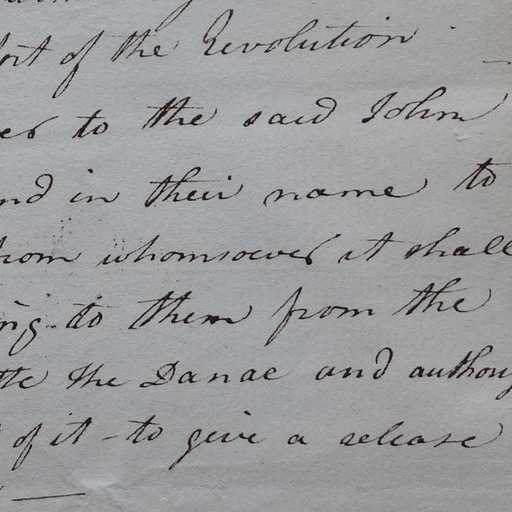 of the Revolution
to the said John
in their name to
whomsoever it shall
to them from the
the Danae and
of it - to give a release